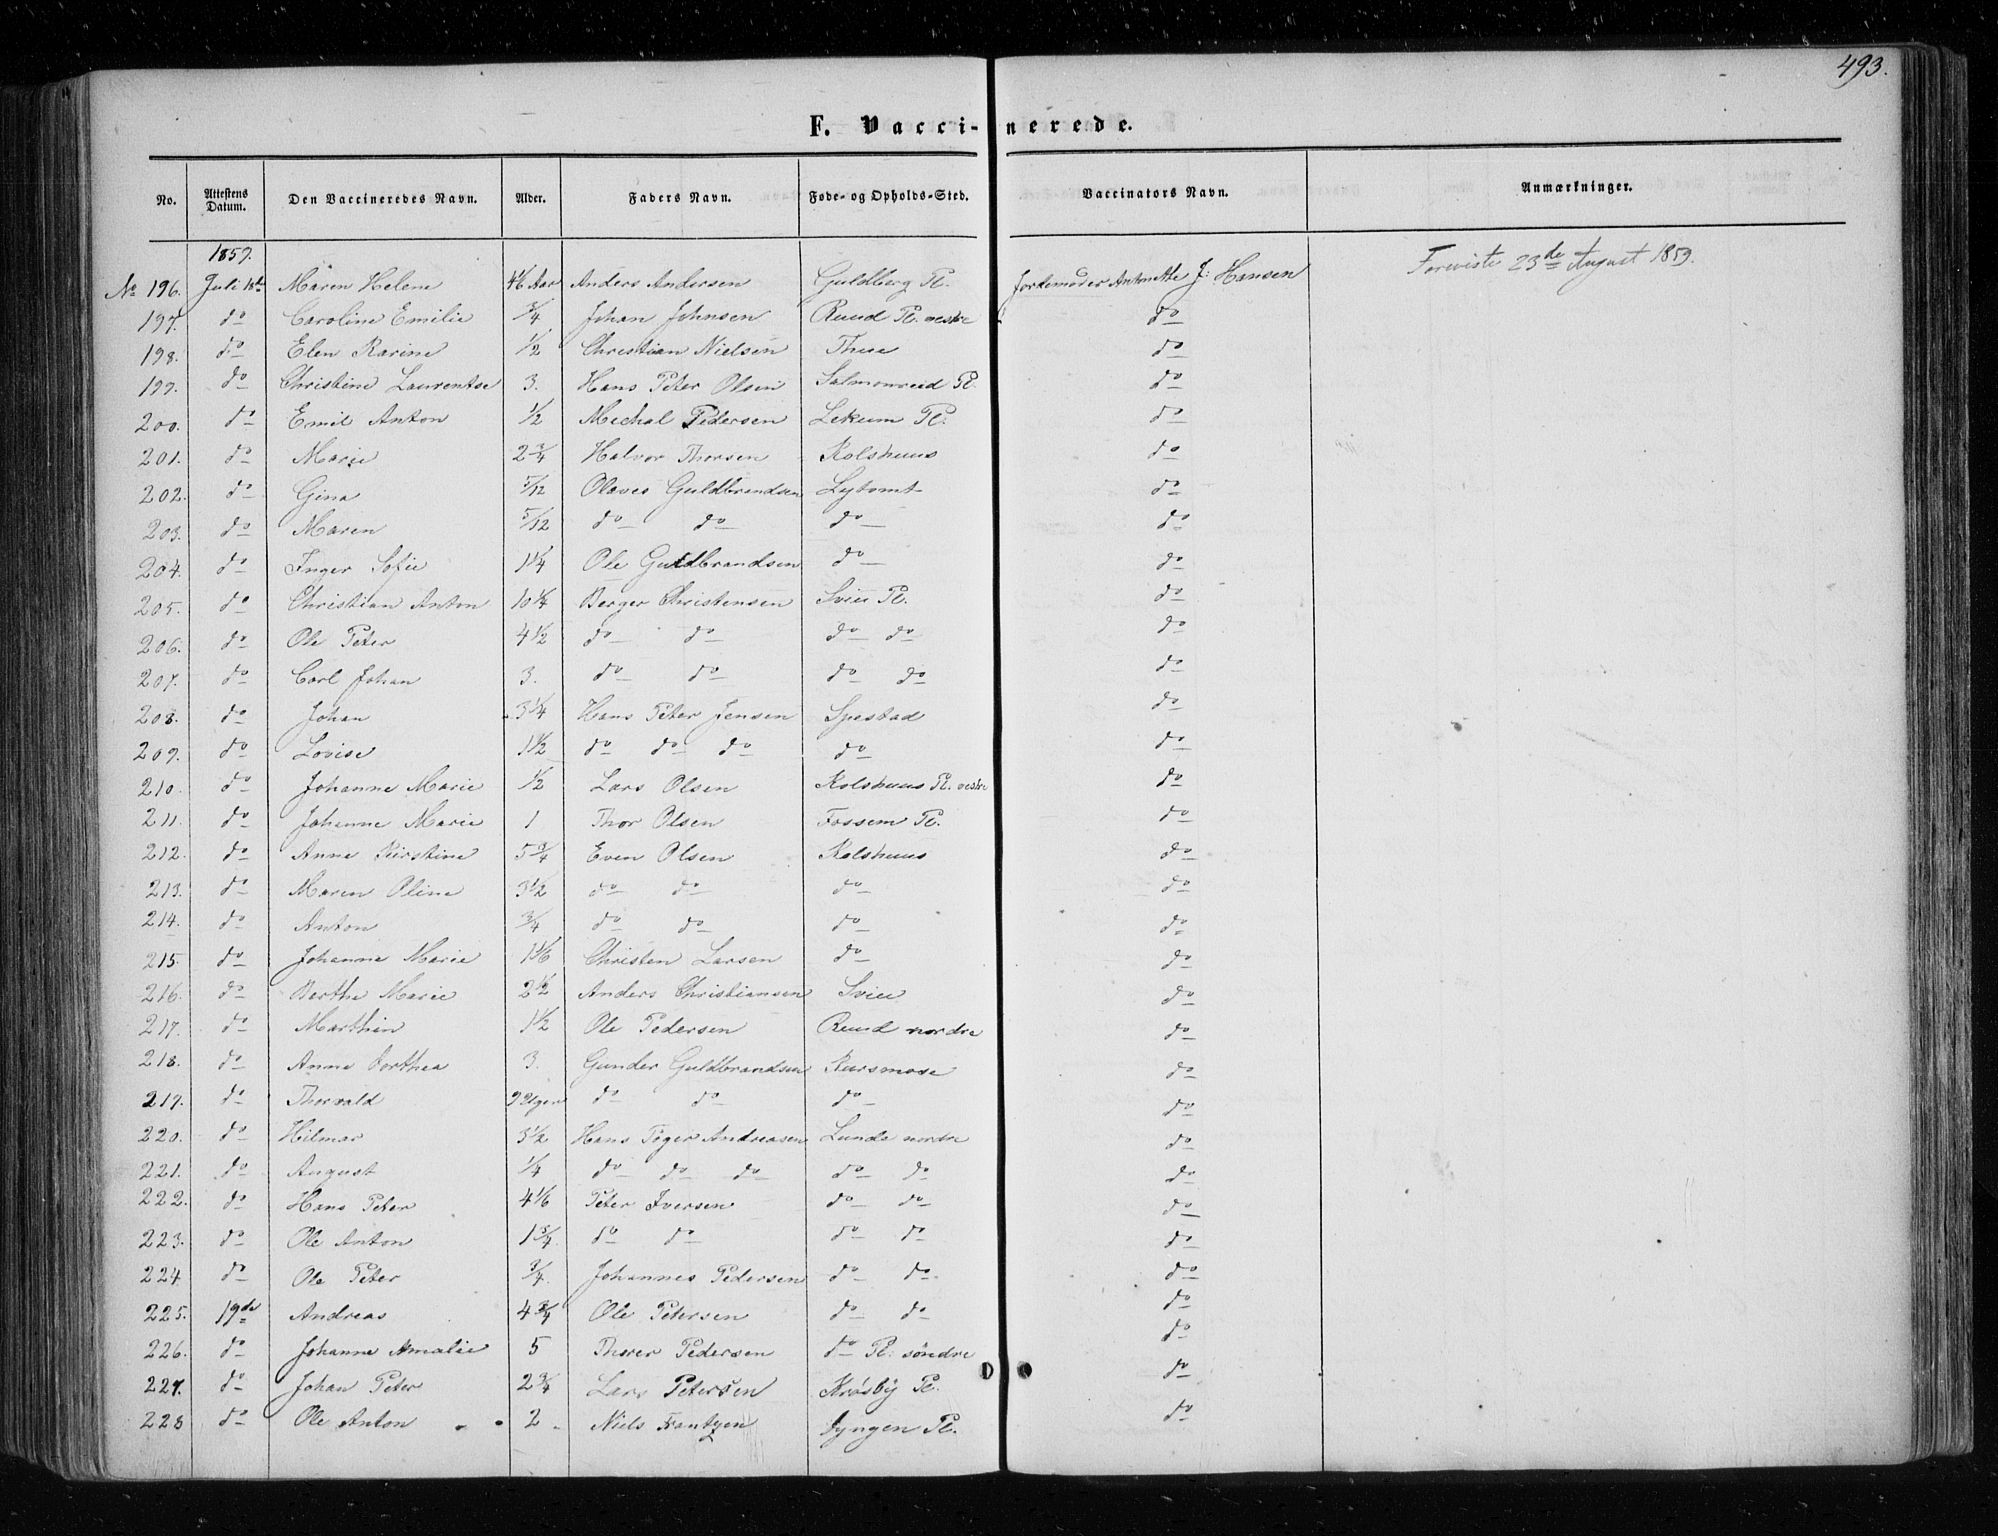 493.
F. Vaccinerede.
No. Attestens Datum. Den Vaccineredes Navn. Alder. Faders Navn. Føde- og Opholds-Sted. Vaccinators Navn. Anmærkninger.
1859. Foreviste 23de August 1859.
No 196. Juli 18de Maren Helene Aar Anders Andersen Guldberg Pl. Jordemoder J: Hansen
197. do Caroline Emilie 3/4 Johan Johnsen Ruud Pl. vestre do
198. do Elen Karine 1/2 Christian Nielsen do
199. do Christine Laurentse 3. Hans Peter Olsen Pl. do
200. do Emil Anton 1/2 Michal Pedersen Lekum Pl. do
201. do Marie 2 3/4 Halvor Thorsen Kolshuus do
202. do Gina 5/12 Olaves Guldbrandsen Lytomt do
203. do Maren 5/12 do do do do
204. do Inger Sofie 1 1/4 Ole Guldbrandsen do do
205. do Christian Anton 10 1/4 Berger Christensen Pl. do
206. do Ole Peter 4 1/2 do do do do do
207. do Carl Johan 3. do do do do do
208. do Johan 3 1/4 Hans Peter Jensen Spestad do
209. do Lovise 1 1/2 do do do do do
210. do Johanne Marie 1/2 Lars Olsen Kolshuus Pl. vestre do
211. do Johanne Marie 1 Thor Olsen Fossem Pl. do
212. do Anne Kirstine 5 3/4 Even Olsen Kolshuus do
213. do Maren Oline 3 1/2 do do do do
214. do Anton 3/4 do do do do
215. do Johanne Marie 1 1/6 Christen Larsen do do
216. do Berthe Marie 2 1/2 Anders Christiansen do
217. do Marthin 1 1/2 Ole Pedersen Ruud nordre do
218. do Anne Dorthea 3. Gunder Guldbrandsen do
219. do Thorvald 9 Uger do do do do
220. do Hilmar 3 1/2 Hans Tøger Andreasen Lunde nordre do
221. do August 1/4 do do do do do do
222. do Hans Peter 4 1/6 Peter Iversen do do do
223. do Ole Anton 1 3/4. do do do do do
224. do Ole Peter 3/4. Johannes Pedersen do do do
225. 19de Andreas 4 3/4 Ole Petersen do do do
226. do Johanne Amalie 5 Thorer Pedersen do Pl: søndre do
227. do Johan Peter 2 3/4 Lars Petersen Krosby Pl. do
228 do Ole Anton 2 Niels Frantzen Lyngen Pl. do